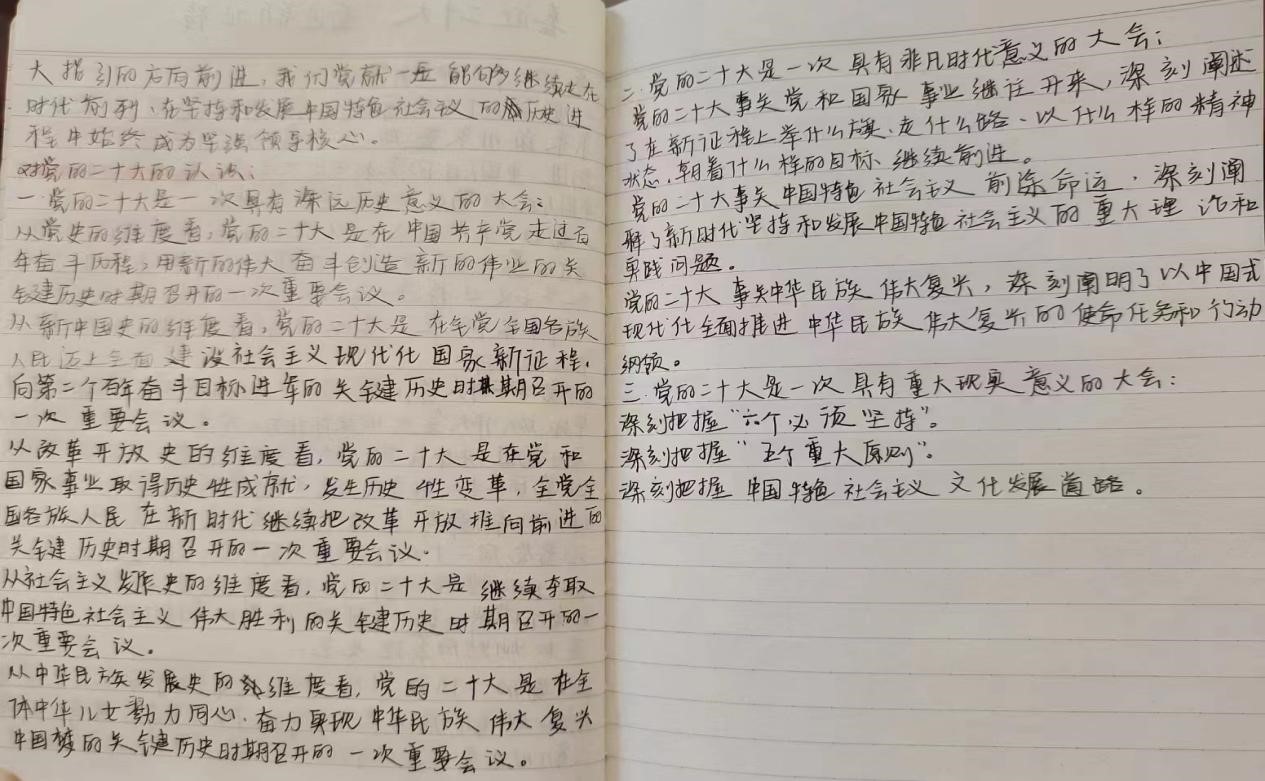 大指引的方向前进，我们党就一定能够继续走在
时代前列、在坚持和发展中国特色社会主义的历史进
程中始终成为坚强领导核心。
对党的二十大的认识：
一.党的二十大是一次具有深远历史意义的大会：
从党史的维度看，党的二十大是在中国共产党走过百
年奋斗历程，用新的伟大奋斗创造新的伟业的关
键历史时期召开的一次重要会议。
从新中国史的维度看，党的二十大是在全党全国各族
人民迈上全面建设社会主义现代化国家新征程，
向第二个百年奋斗目标进军的关键历史时期召开的
一次重要会议。
从改革开放史的维度看，党的二十大是在党和
国家事业取得历史性成就，发生历史性变革，全党全
国各族人民在新时代继续把改革开放推向前进的
关键历史时期召开的一次重要会议.
从社会主义发展史的维度看，党的二十大是继续夺取
中国特色社会主义伟大胜利的关键历史时期召开的一
次重要会议。
从中华民族发展史的维度看，党的二十大是在全
体中华儿女勠力同心.奋力实现中华民族伟大复兴
中国梦的关键历史时期召开的一次重要会议。
二.党的二十大是一次具有非凡时代意义的大会：
党的二十大事关党和国家事业继往开来，深刻阐述
了在新征程上举什么旗、走什么路、以什么样的精神
状态，朝着什么样的目标继续前进。
党的二十大事关中国特色社会主义前途命运，深刻阐
释了新时代坚持和发展中国特色社会主义的重大理论和
实践问题。
党的二十大事关中华民族伟大复兴，深刻阐明了以中国式
现代化全面推进中华民族伟大复兴的使命任务和行动
纲领。
三.党的二十大是一次具有重大现实意义的大会：
深刻把握“六个必须坚持”。
深刻把握“五个重大原则”。
深刻把握中国特色社会主义文化发展道路。